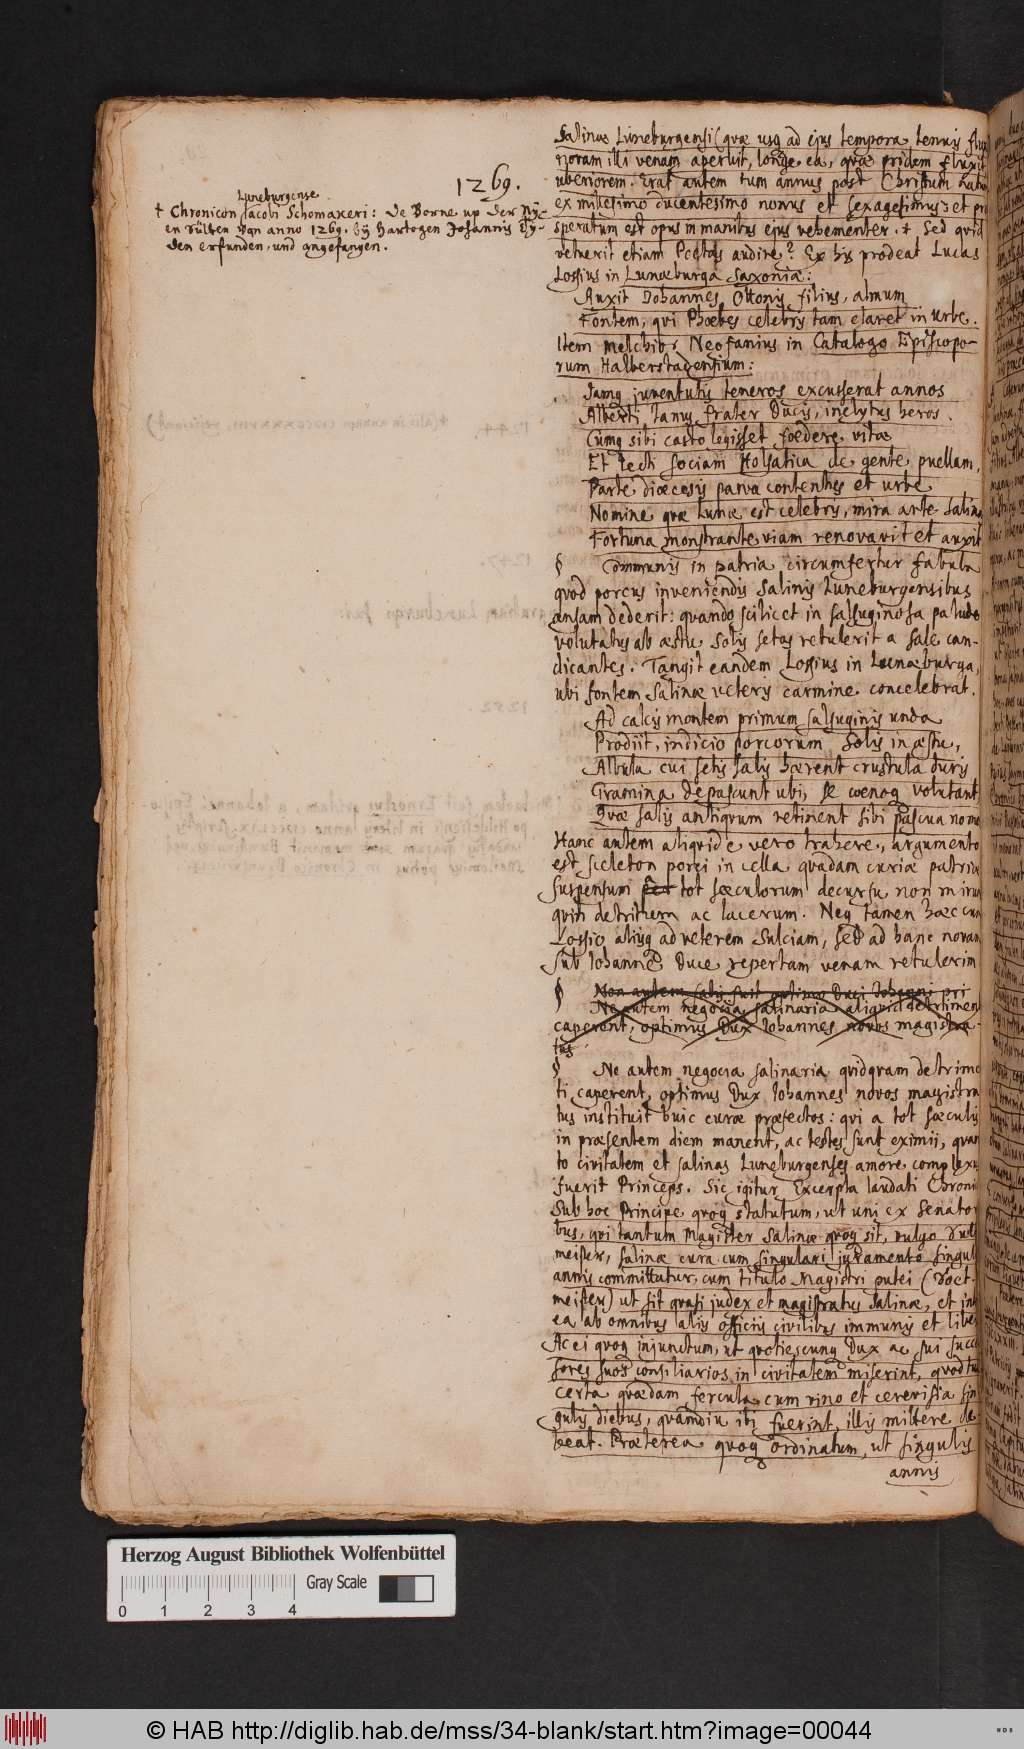 1269.
Luneburgense
† Chronicon Jacobi Schomakeri: De Borne up der Ny-
en Sülten van anno 1269. by Hartogen Johannis Ty-
den erfunden, und angefangen.
Salinas Lüneburgensi (quæ usq ad ejus tempora tenuis
noram illi venam aperuit, longe ea, quæ pridem fluxit
uberiorem. Erat autem tum annus post Christum natu
ex millesimo ducentesimo nonus et sexagesimus: et pro
speratum est opus in manibus ejus vehementer. † Sed quid
vetuerit etiam Poëtas audire? Ex his prodeat Lucas
Lossius in Lunæburga Saxoniæ:
Auxit Johannes, Ottonis filius, almum
Fontem, qui Phœbes celebris tam claret in Urbe.
Item Melchior Neofanius in Catalogo Episcopo-
rum Halberstadensium:
Jamq juventutis teneros excusserat annos
Alberti tanti frater Ducis, inclytus heros.
Cumq sibi casto legisset fœdere vitæ
Et tecti sociam Holsatica de gente puellam,
Parte diœcesis parva contentus et urbe
Nomine quæ Lunæ est celebris, mira arte Salinas
Fortuna monstrante viam renovavit et auxit
§ Communis in patria circumfertur fabula
quod porcus inveniendis Salinis Luneburgensibus
ansam dederit: quando scilicet in salsuginosa palude
volutatus ab æstu Solis setas retulerit a sale can-
dicantes. Tangit eandem Lossius in Lunæburga,
ubi fontem Salinæ veteris carmine concelebrat.
Ad calcis montem primum salsuginis unda
Prodiit, indicio porcorum Solis in æstu,
Albula cui setis salis hærent crustula duris
Gramina depascunt ubi, se cœnoq volutant
Quæ salis antiqvum retinent sibi pascua nomen
Hanc autem aliquid e vero trahere, argumento
est sceleton porci in cella quadam curiæ patriæ
suspensum per tot sæculorum decursu non mirum
quin detritum ac lacerum. Neq tamen hæc cum
Lossio aliisq ad veterem Sulciam, sed ad hanc novam
sub Johanne Duce repertam venam retulerim
§ Non autem satis fuit optimo Duci Johanni pri
Ne autem negocia salinaria aliquid detrimen
caperent, optimus Dux Johannes novos magistra-
tus
§ Ne autem negocia salinaria quidqvam detrimen
ti caperent, optimus Dux Johannes novos magistra
tus instituit huic curæ præfectos: qvi a tot sæculis
in præsentem diem manent, ac testes sunt eximii, quan
to civitatem et salinas Luneburgenses amore complexus
fuerit Princeps. Sic igitur Excerpta laudati Chronici
Sub hoc Principe quoq statutum, ut uni ex Senator
bus, qvi tantum Magister Salinæ quoq sit, vulgo Sult
meister, salinæ cura cum singulari juramento singul
annis committatur, cum titulo Magistri putei (Soet-
meister) ut sit quasi judex et magistratus Salinæ, et in
ea ab omnibus aliis officiis civilibus immunis et liber
Ac ei quoq injunctum, ut quotiescunq Dux ac sui succe
sores suos consiliarios in civitatem miserint, quod tu
certa quædam fercula, cum vino et cerevisia sin
gulis diebus, quamdiu ibi fuerint, illis mittere de
beat. Præterea quoq ordinatum, ut singulis
annis
Herzog August Bibliothek Wolfenbüttel
Gray Scale
0 1 2 3 4
© HAB http://diglib.hab.de/mss/34-blank/start.htm?image=00044
HAB